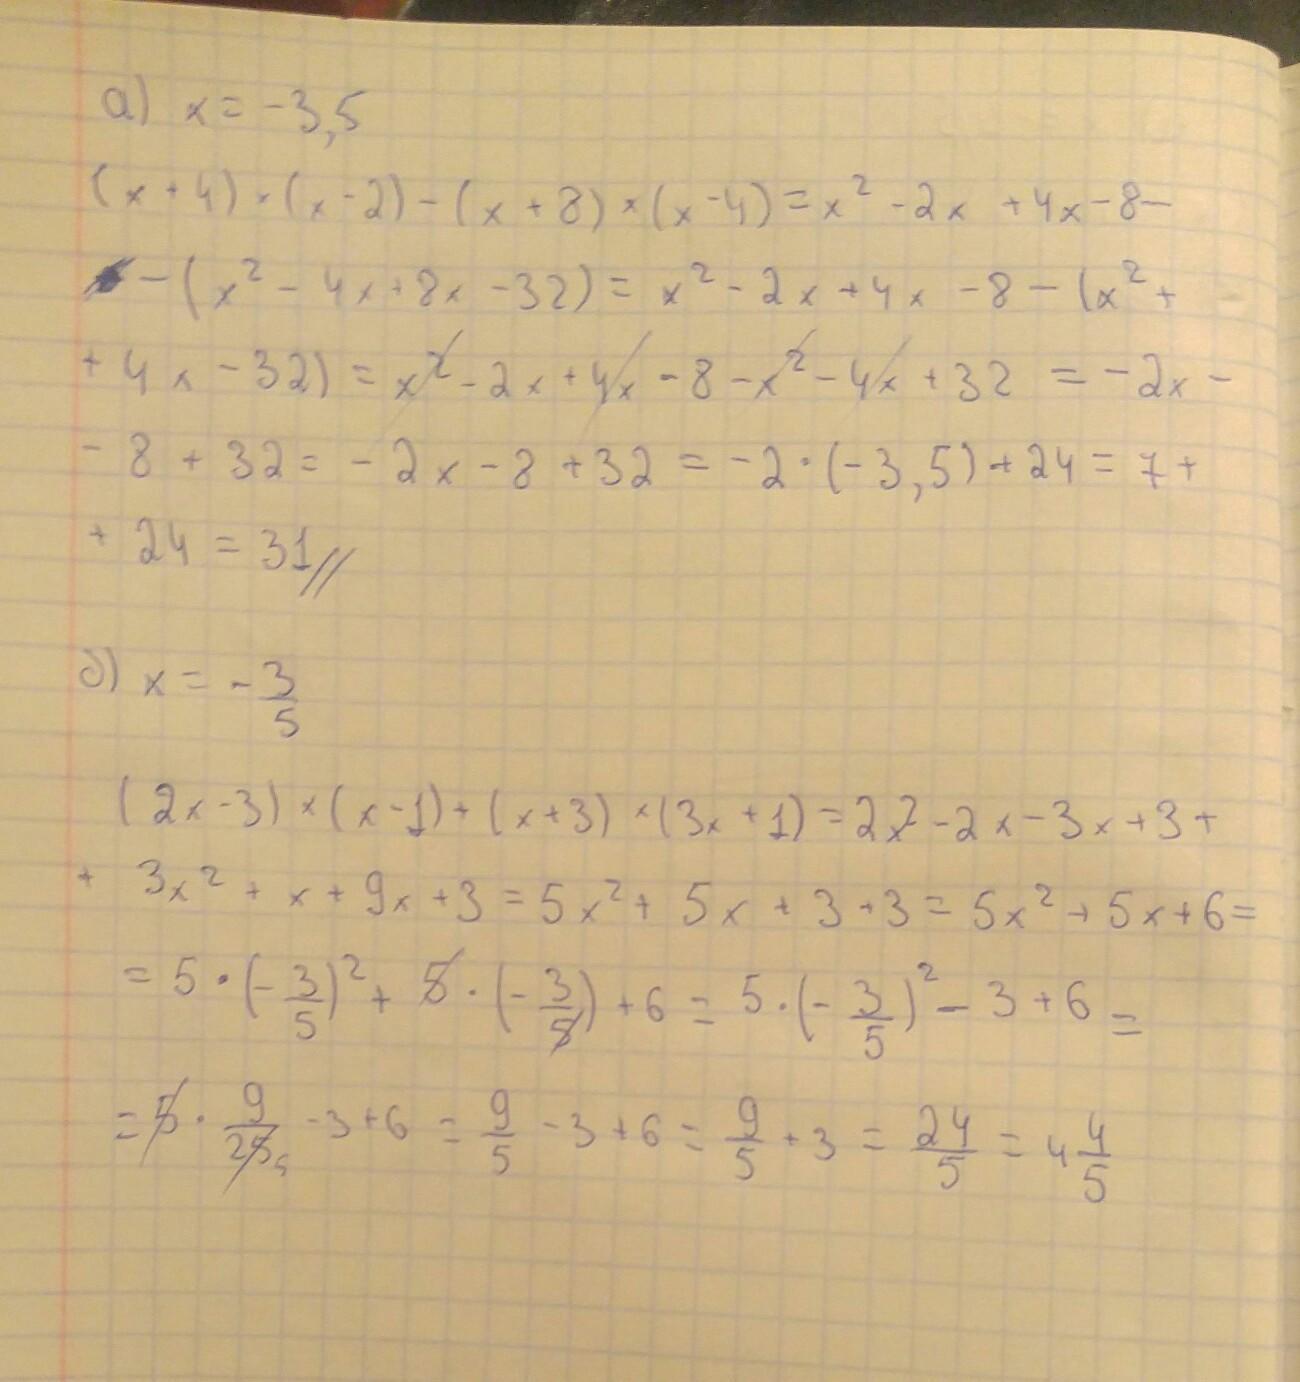 а) x = -3,5
(x + 4) · (x - 2) - (x + 8) × (x - 4) = x² - 2x + 4x - 8 -
- (x² - 4x + 8x - 32) = x² - 2x + 4x - 8 - (x² +
+ 4x - 32) = x² - 2x + 4x - 8 - x² - 4x + 32 = -2x -
- 8 + 32 = -2x - 8 + 32 = -2 · (-3,5) + 24 = 7 +
+ 24 = 31//
б) x = -3/5
(2x - 3) × (x - 1) + (x + 3) × (3x + 1) = 2x² - 2x - 3x + 3 +
+ 3x² + x + 9x + 3 = 5x² + 5x + 3 + 3 = 5x² + 5x + 6 =
= 5 · (-3/5)² + 5 · (-3/5) + 6 = 5 · (-3/5)² - 3 + 6 =
= 5 · 9/25 5 - 3 + 6 = 9/5 - 3 + 6 = 9/5 + 3 = 24/5 = 4 4/5